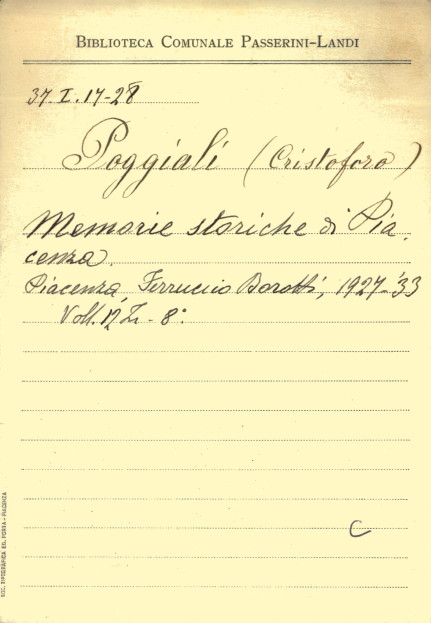 BIBLIOTECA COMUNALE PASSERINI-LANDI
37.I.17-28
Poggiali (Cristoforo)
Memorie storiche di Pia-
cenza.
Piacenza, Ferruccio Borotti, 1927-'33
Voll. 12 in-8°.
C
SOC. TIPOGRAFICA ED. PORTA - PIACENZA